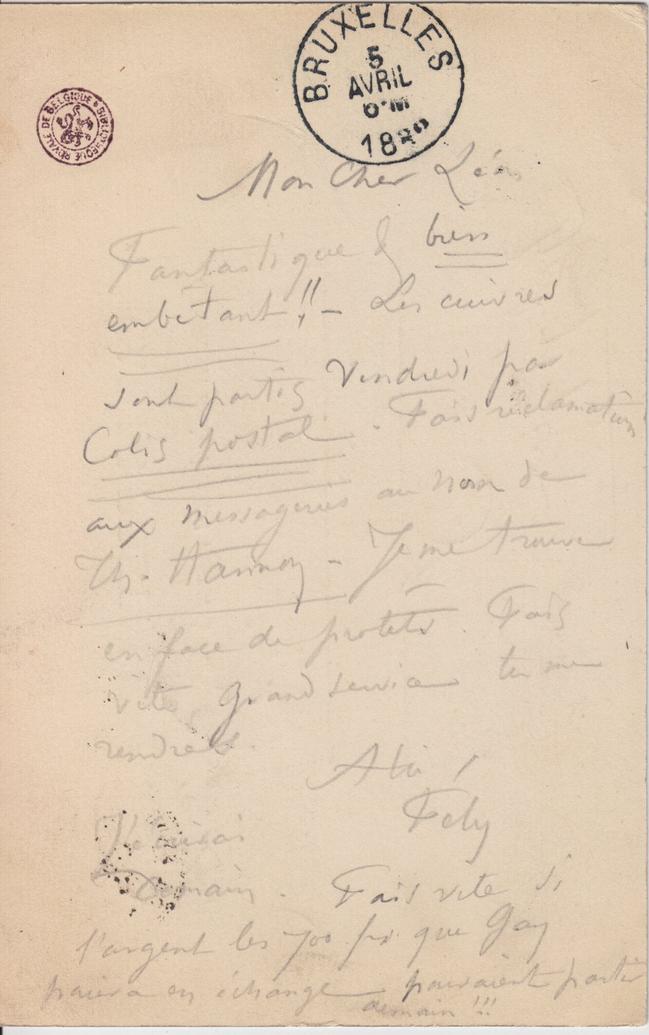 BRUXELLES
5
AVRIL
18
BIBLIOTHEQUE ROYALE DE BELGIQUE
Mon Cher Léon
Fantastique & bien
embêtant!! – Les cuivres
sont partis Vendredi par
Colis postal. Fais réclamation
aux messageries au nom de
Th. Hannon – Je me trouve
en face de protêts. Fais
vite, Grand service tu me
rendras.
A toi!
Fély
demain. Fais vite si
l'argent les 700 frs que Gay
paiera en échange pouvaient partir
demain!!!